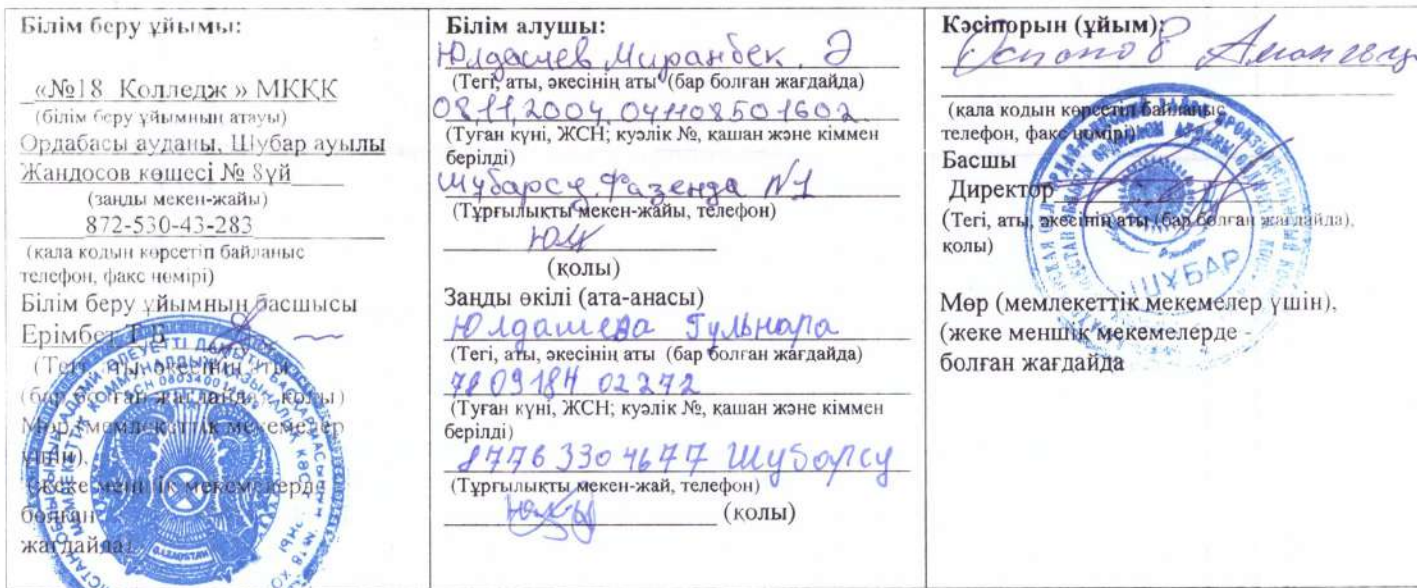 Білім беру ұйымы:
«№18 Колледж » МКҚК
(білім беру ұйымның атауы)
Ордабасы ауданы, Шубар ауылы
Жандосов көшесі № 8үй
(заңды мекен-жайы)
872-530-43-283
(қала кодын көрсетіп байланыс
телефон, факс нөмірі)
Білім беру ұйымның басшысы
Ерімбет Т.Б
(Тегі, аты, әкесінің аты
(бар болған жағдайда), қолы)
Мөр (мемлекеттік мекемелер
үшін),
(жеке меншік мекемелерде
болған
жағдайда)
Білім алушы:
Юлдашев Миранбек. Ә
(Тегі, аты, әкесінің аты (бар болған жағдайда)
08.11.2004. 041108501602.
(Туған күні, ЖСН; куәлік №, қашан және кіммен
берілді)
Шубарсу. Фазенда №1
(Тұрғылықты мекен-жайы, телефон)
(қолы)
Заңды өкілі (ата-анасы)
Юлдашева Гульнара
(Тегі, аты, әкесінің аты (бар болған жағдайда)
780918402272
(Туған күні, ЖСН; куәлік №, қашан және кіммен
берілді)
87763304677 Шубарсу
(Тұрғылықты мекен-жай, телефон)
(қолы)
Кәсіпорын (ұйым):
Оспанов
(қала кодын көрсетіп байланыс
телефон, факс нөмірі)
Басшы
Директор
(Тегі, аты, әкесінің аты (бар болған жағдайда),
қолы)
ШҰБАР
Мөр (мемлекеттік мекемелер үшін),
(жеке меншік мекемелерде -
болған жағдайда